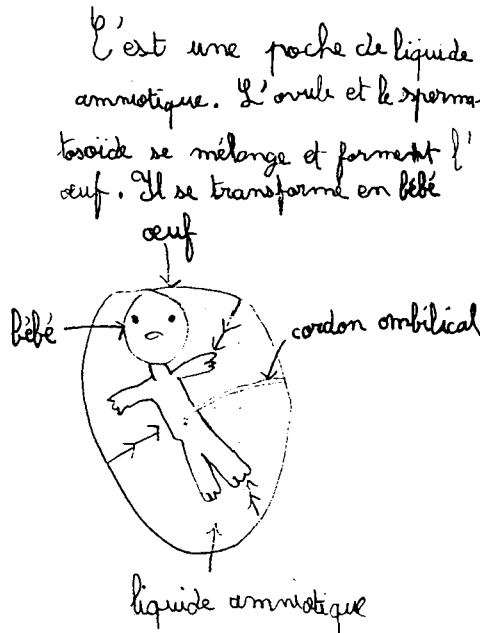 C'est une poche de liquide
amniotique. L'ovule et le sperma-
tosoïde se mélange et forment l'
œuf. Il se transforme en bébé
œuf
bébé
cordon ombilical
liquide amniotique